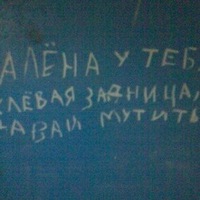 АЛЁНА У ТЕБ
КЛЁВАЯ ЗАДНИЦА,
ДАВАЙ МУТИТЬ